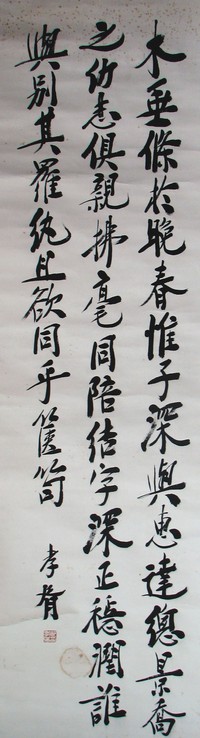 木垂條於晚春惟子深與惠達總景喬
之幼志俱親拂毫同陪結字深正穩潤誰
與別其羅紈且欲同乎篋笥
孝胥